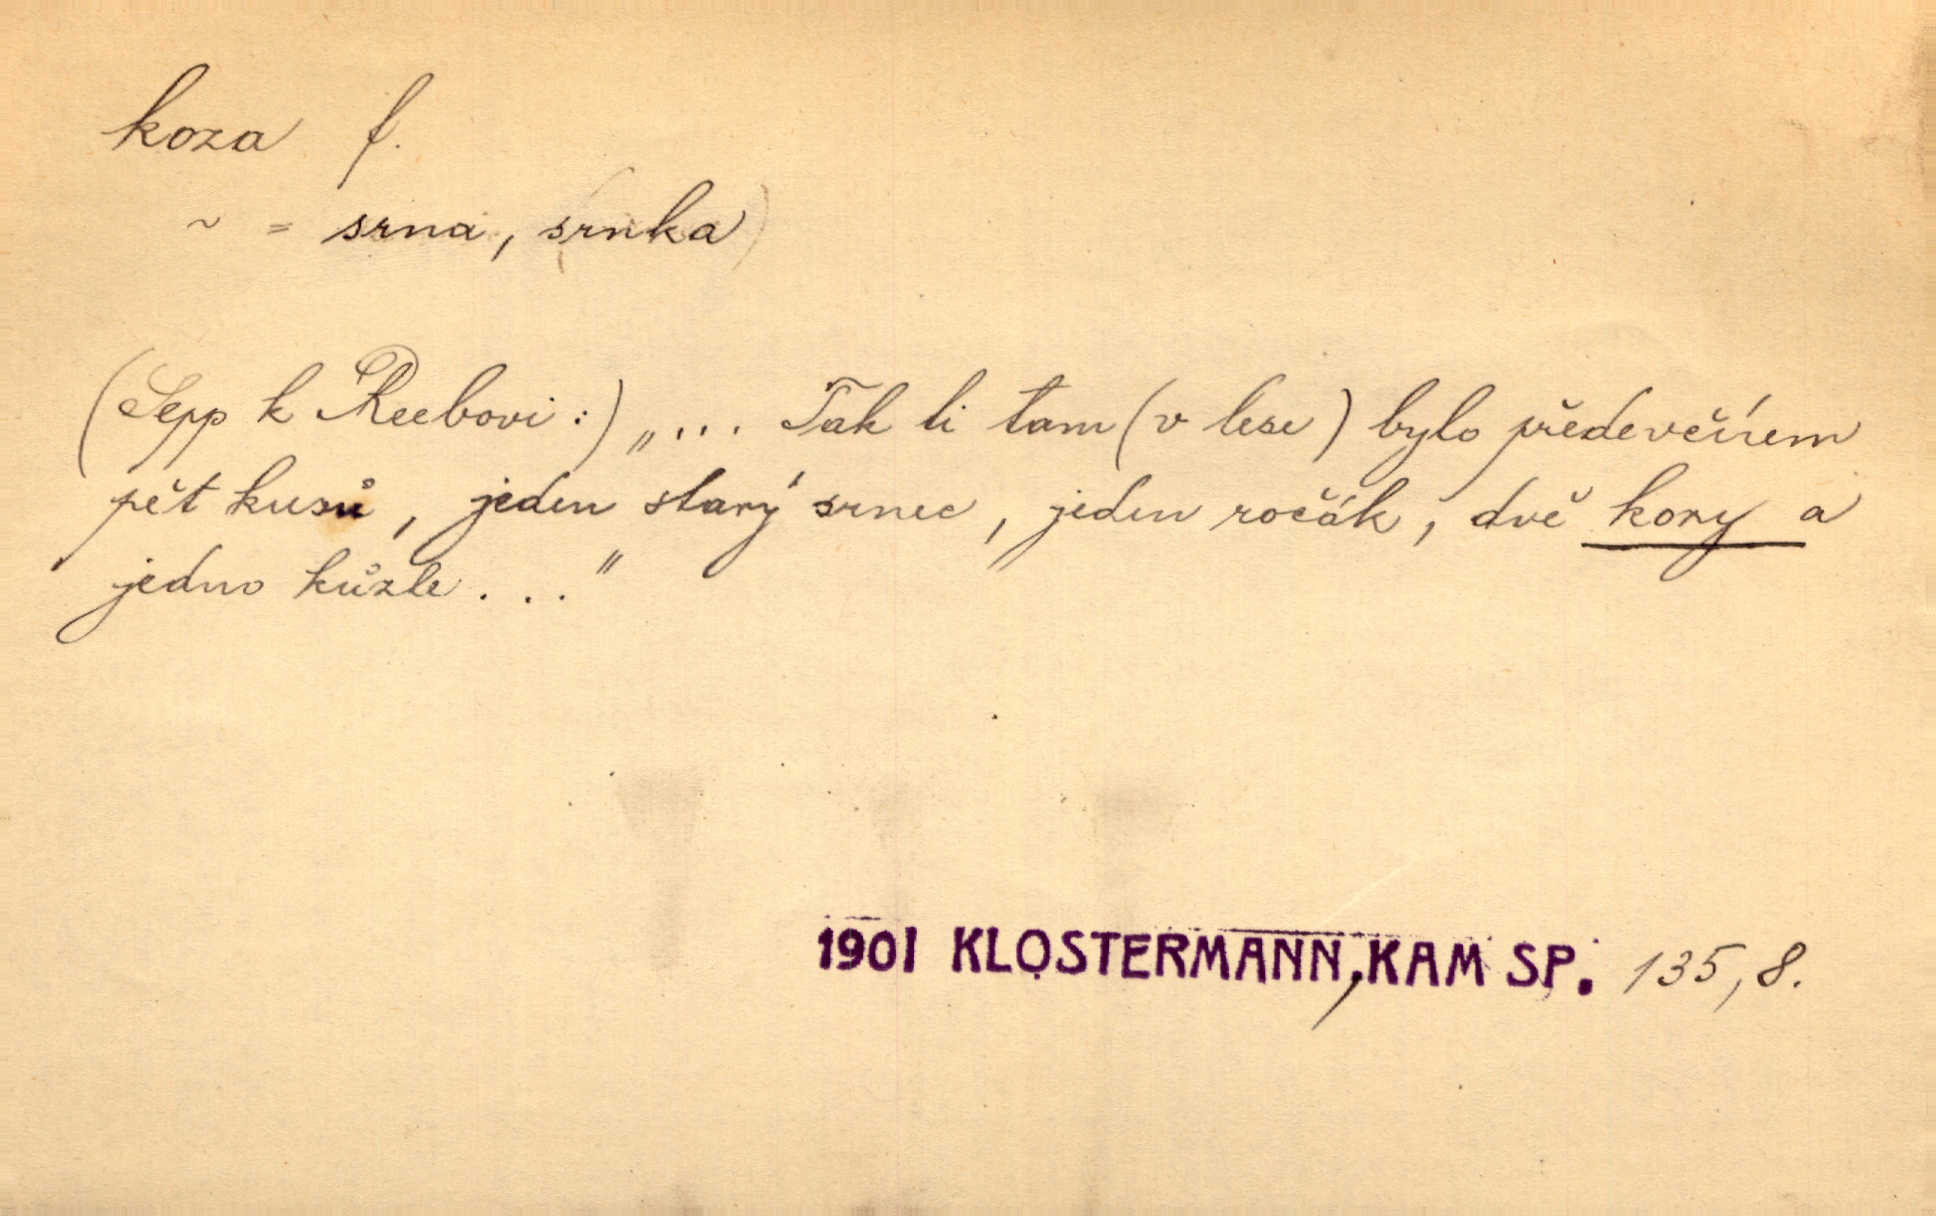 koza f.
~ = srna, srnka)
(Sepp k Reebovi:) „... Tak li tam (v lese) bylo předevčírem
pět kusů, jeden starý srnec, jeden ročák, dvě kozy a
jedno kůzle ..."
1901 KLOSTERMANN, KAM SP. 135, 8.